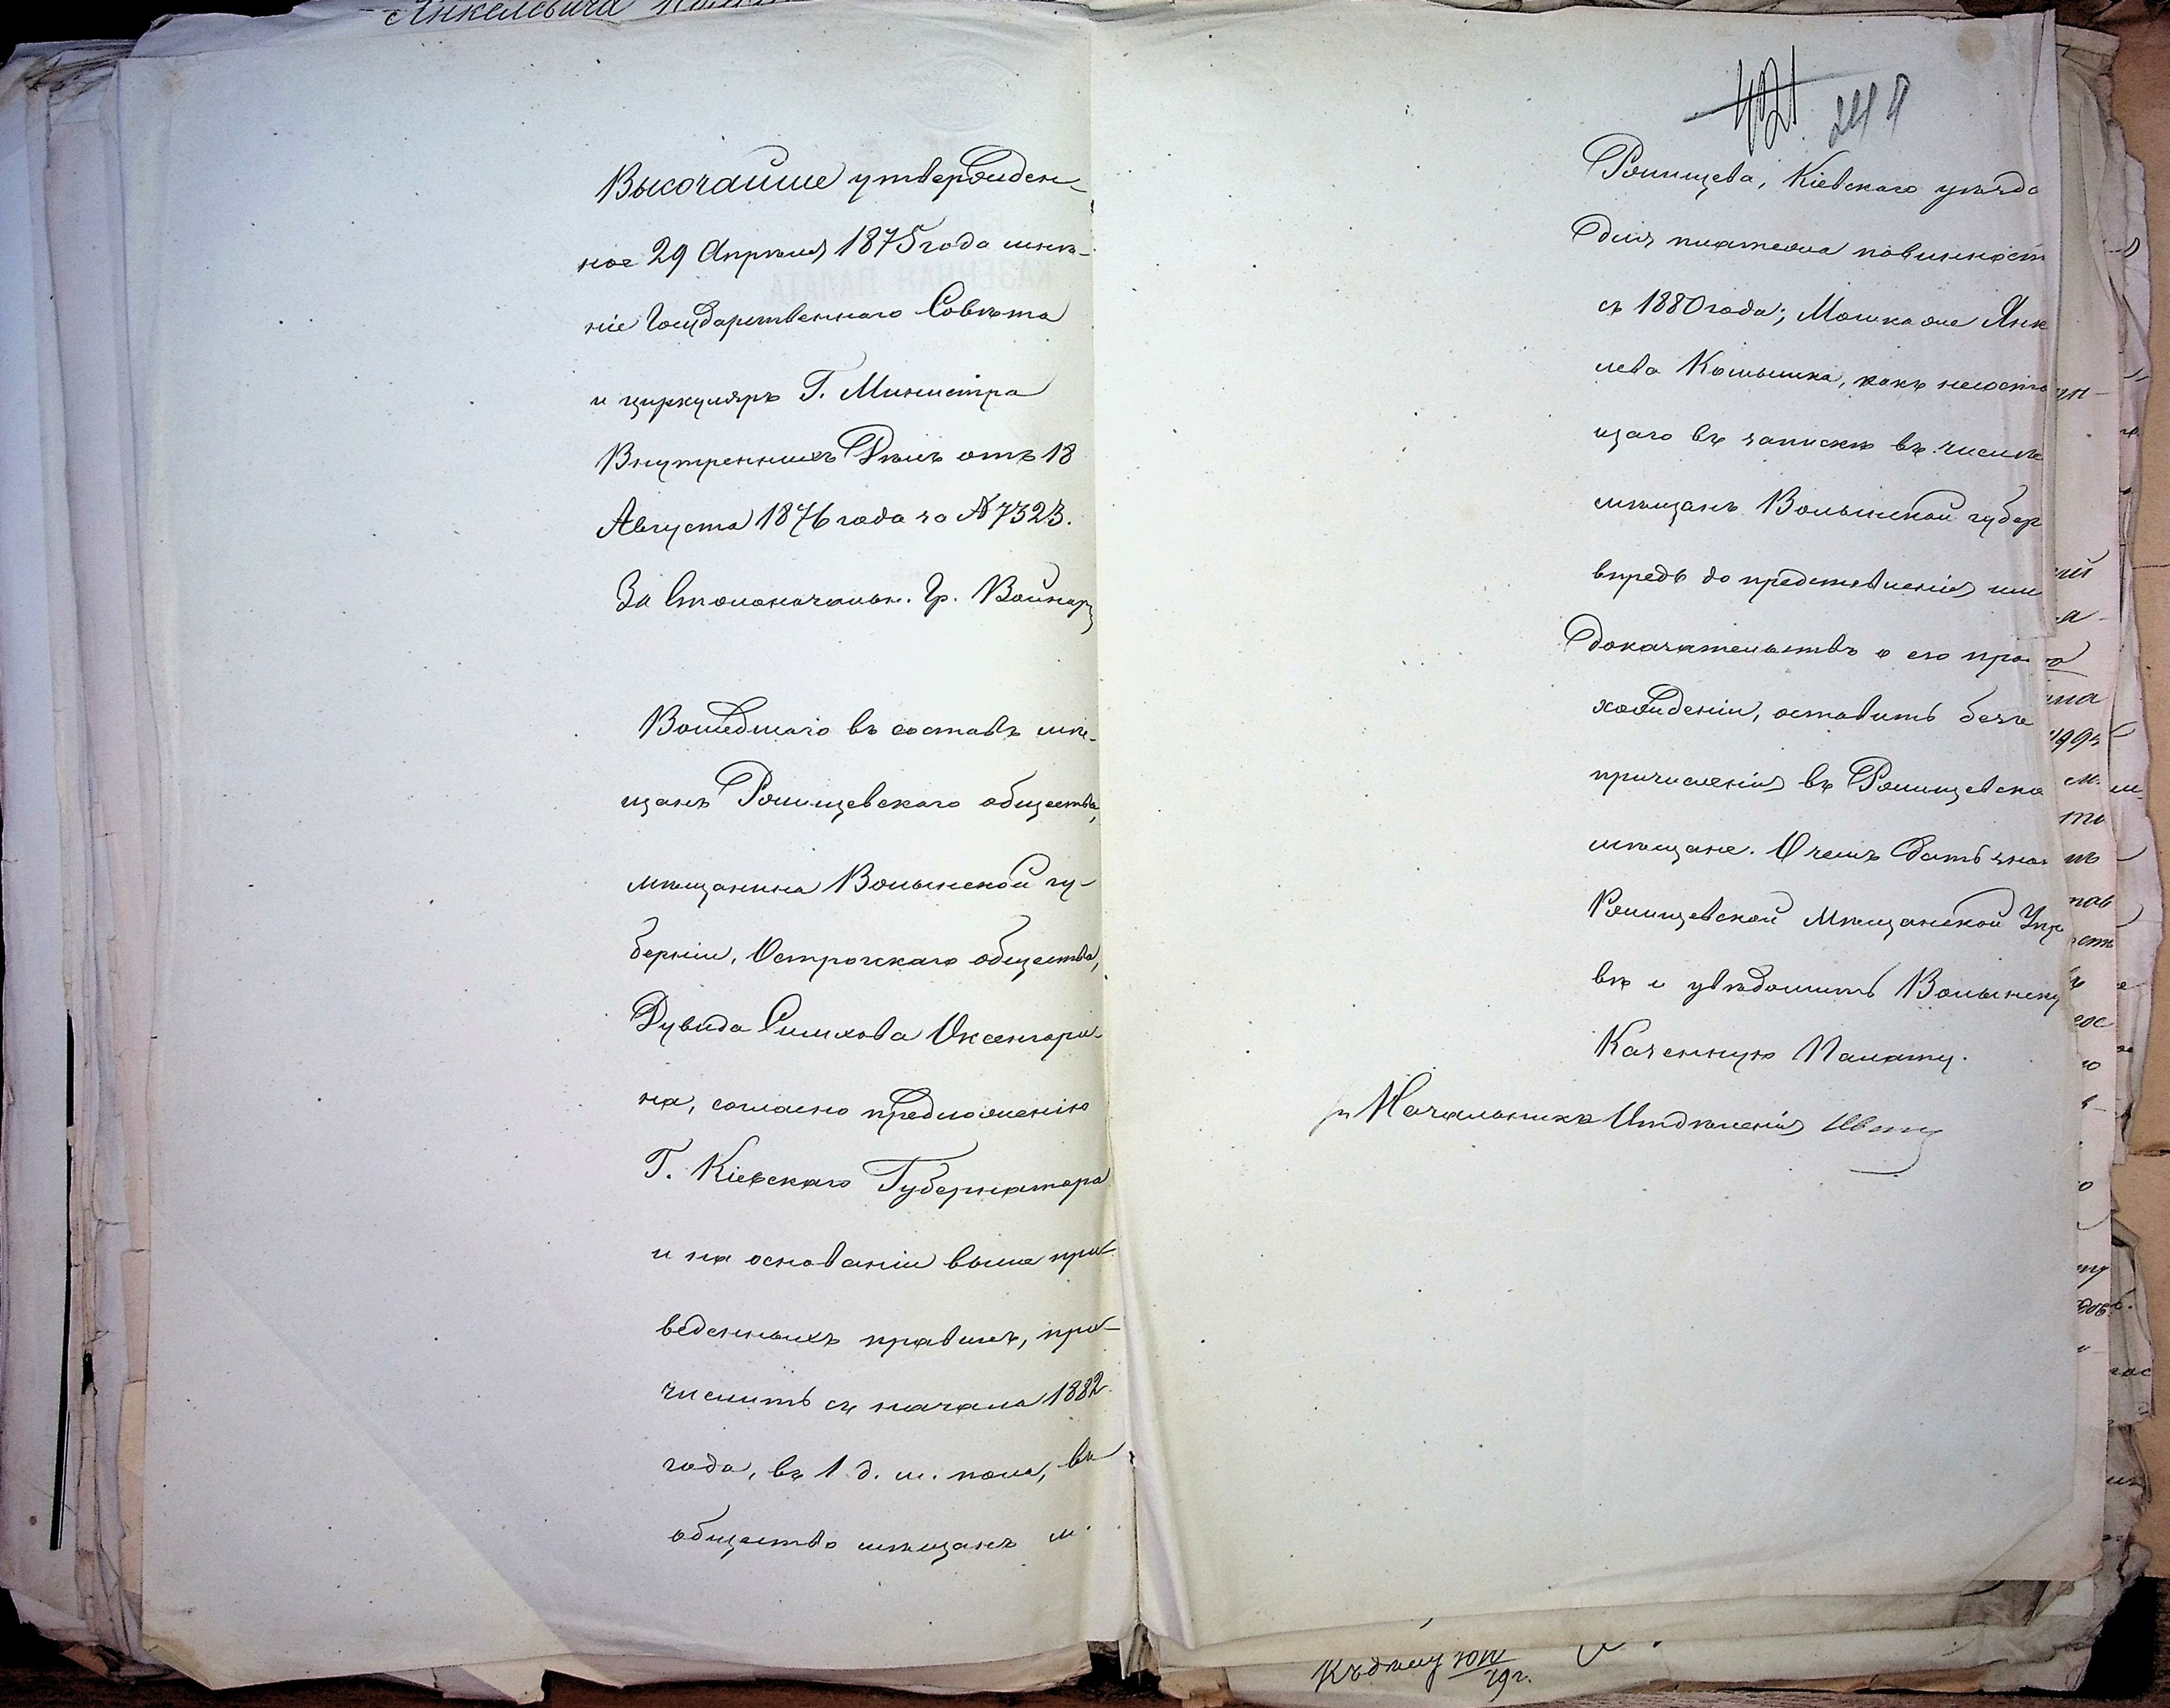 Янкелевича
Высочайше утвержден-
ное 29 Апрѣля 1875 года мнѣ-
ніе Государственнаго Совѣта
и циркуляръ Г. Министра
Внутреннихъ Дѣлъ отъ 18
Августа 1876 года за № 7323.
За Столоначальн. Гр.
Вошедшаго въ составъ мѣ-
щанъ Ромищевскаго общества,
мѣщанина Волынской гу-
берніи, Острогскаго общества,
Дувида Симхова Оксенгори-
на, согласно предложенію
Г. Кіевскаго Губернатора
и на основаніи выше при-
веденныхъ правилъ, при-
числить съ начала 1882
года, въ 1 д. м. пола, въ
общество мѣщанъ м.
421 244
Ромищева, Кіевскаго уѣзда
для платежа повинност
съ 1880 года; Мошка же Янк
лева Колышка, какъ несосто
щаго въ запискѣ въ числѣ
мѣщанъ Волынской губер
впредь до представленія им
доказательствъ о его проис
хожденіи, оставить безъ
причисленія въ Ромищевскіе
мѣщане. О чемъ дать знать
Ромищевской Мѣщанской Упр
вѣ и увѣдомить Волынску
Казенную Палату.
Начальника Отдѣленія
Къ дѣлу